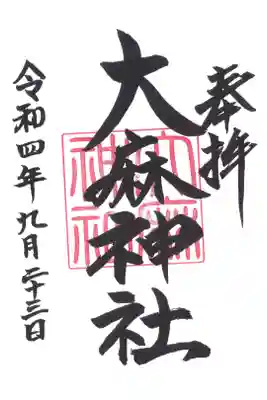 奉拝
大麻神社
令和四年九月二十三日